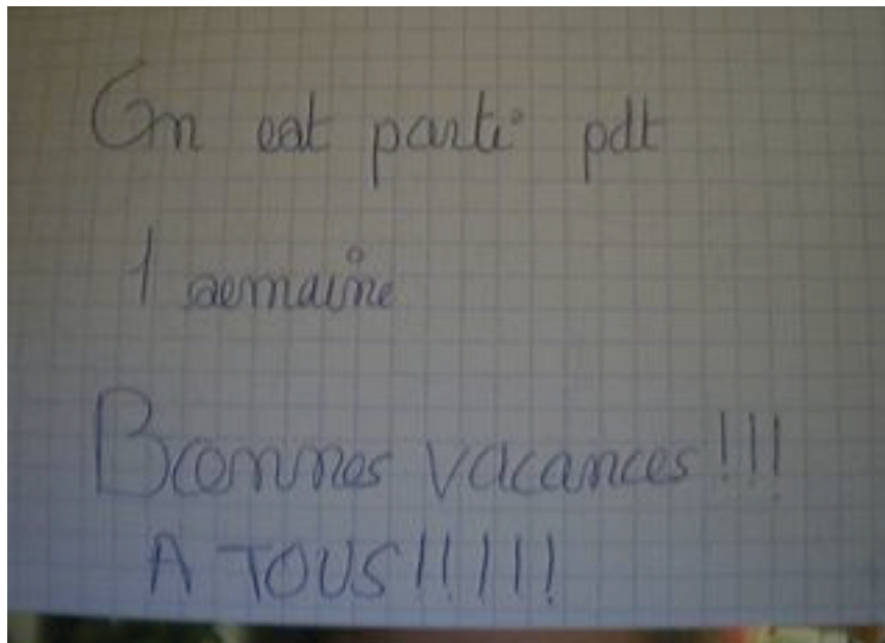 On est parti pdt
1 semaine
Bonnes vacances!!!
A TOUS!!!!!!